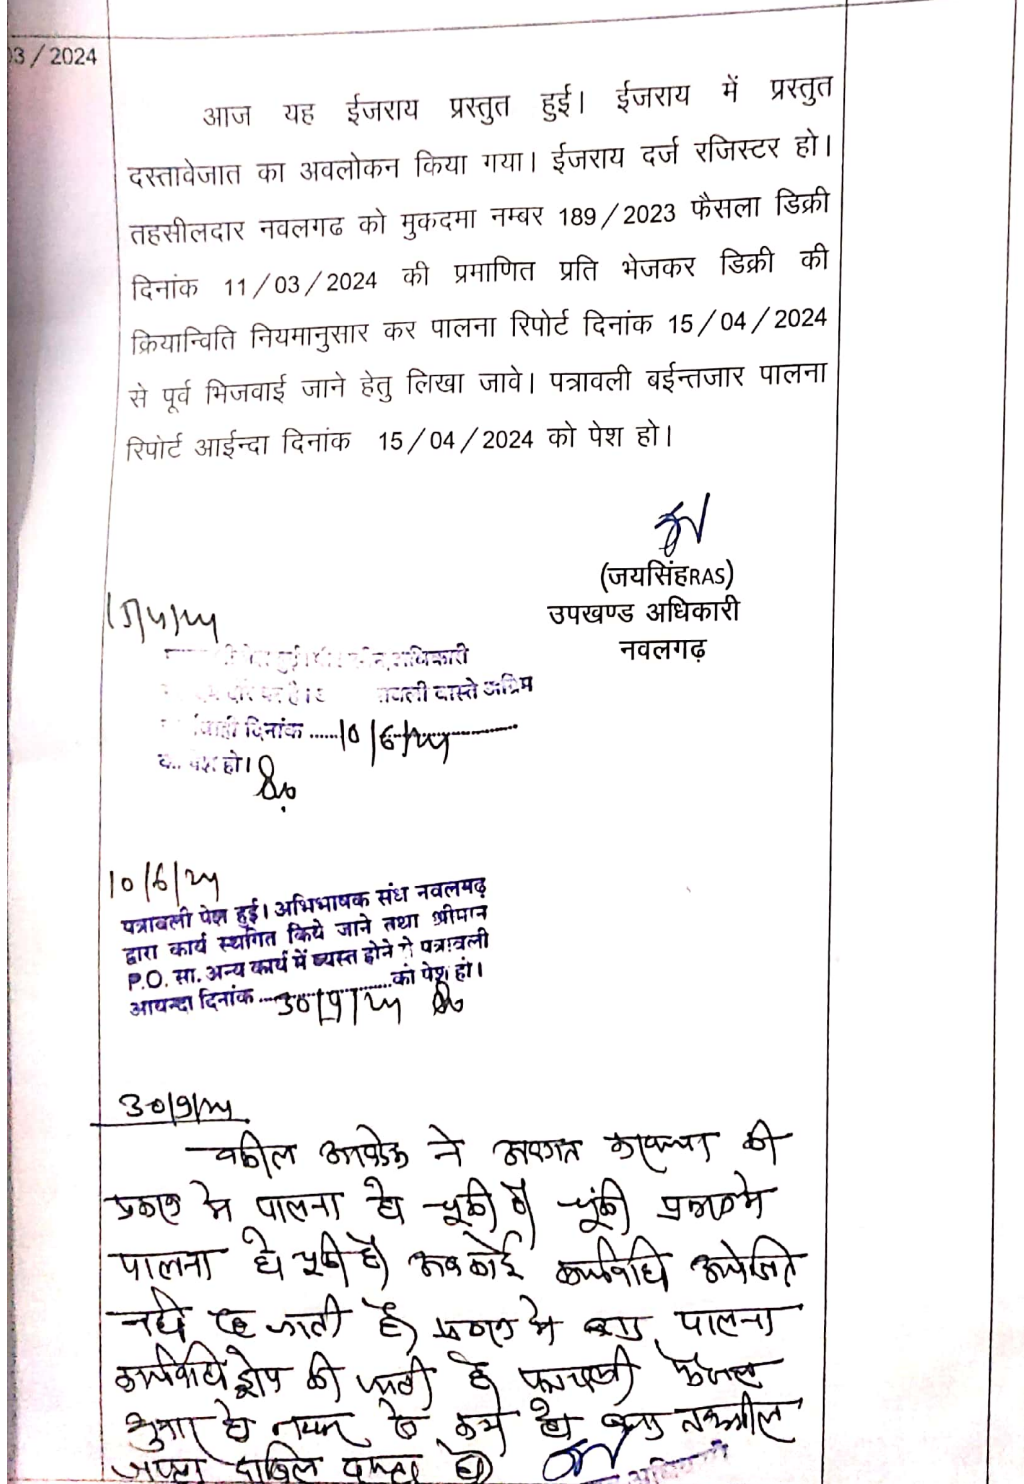 03/2024
आज यह ईजराय प्रस्तुत हुई। ईजराय में प्रस्तुत
दस्तावेजात का अवलोकन किया गया। ईजराय दर्ज रजिस्टर हो।
तहसीलदार नवलगढ को मुकदमा नम्बर 189/2023 फैसला डिक्री
दिनांक 11/03/2024 की प्रमाणित प्रति भेजकर डिक्री की
क्रियान्विति नियमानुसार कर पालना रिपोर्ट दिनांक 15/04/2024
से पूर्व भिजवाई जाने हेतु लिखा जावे। पत्रावली बईन्तजार पालना
रिपोर्ट आईन्दा दिनांक 15/04/2024 को पेश हो।
(जयसिंहRAS)
उपखण्ड अधिकारी
नवलगढ़
15/4/24
अधिकारी
वास्ते अग्रिम
दिनांक ......10/6/24
पेश हो।
10/6/24
पत्रावली पेश हुई। अभिभाषक संघ नवलगढ़
द्वारा कार्य स्थगित किये जाने तथा श्रीमान
P.O. सा. अन्य कार्य में व्यस्त होने से पत्रावली
आयन्दा दिनांक ..........को पेश हो।
30/9/24
30/9/24
वकील ने की
में पालना हो चूकी है चूंकी
पालना हो चूकी है अब कोई कार्यवाही
नही रह जाती है में पालना
की जाती है फैसल
शुमार हो के हो
दाखिल दफ्तर हो